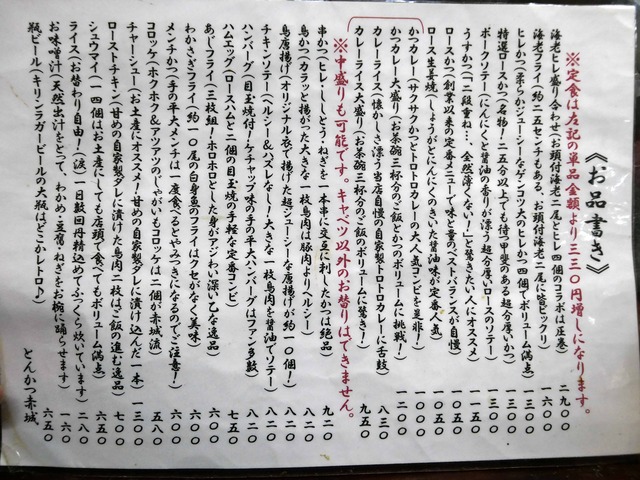 《お品書き》
※定食は左記の単品金額より三三〇円増しになります。
海老ヒレ盛り合わせ(お頭付海老二尾とヒレ四個のコラボは圧巻 二九〇〇
海老フライ(約二五センチもある、お頭付海老二尾に皆ビックリ 二六〇〇
ヒレかつ(柔らかジューシーなゲンコツ大のヒレかつ四個でボリューム満点) 一三〇〇
特選ロースかつ(名物！二五分以上でも待つ甲斐のある超分厚いかつ) 一五〇〇
ポークソテー(にんにくと醤油の香りが漂う超分厚いロースのソテー) 一三〇〇
うすかつ(「二段重ね…、全然薄くない！」と驚きたい人にオススメ)
ロースかつ(創業以来の定番メニューで味と量のベストバランスが自慢)
ロース生姜焼(しょうがとにんにくのきいた醤油味が定番人気) 一〇〇〇
かつカレー(サクサクかつとトロトロカレーの大人気コンビを是非！) 一〇〇〇
かつカレー大盛り(お茶碗三杯分のご飯とかつのボリュームに挑戦！) 一二〇〇
カレーライス(懐かしさ漂う当店自慢の自家製トロトロカレーに舌鼓) 八三〇
カレーライス大盛り(お茶碗三杯分のご飯のボリュームに驚き！) 九五〇
※中盛りも可能です。キャベツ以外のお替りはできません。
串かつ(ヒレ・ししとう・ねぎを一本串に交互に刺したかつは絶品) 九二〇
鳥かつ(カラッと揚がった大きな一枚鳥肉は豚肉よりヘルシー) 八二〇
鳥唐揚げ(オリジナル衣で揚げた超ジューシーな唐揚げが約一〇個！) 八二〇
チキンソテー(ヘルシー＆ハズレなし！大きな一枚鳥肉を醤油でソテー) 八二〇
ハンバーグ(目玉焼付！ケチャップ味の手の平大ハンバーグはファン多数) 八二〇
ハムエッグ(ロースハムと二個の目玉焼の手軽な定番コンビ) 七五〇
あじフライ(三枚組！ホロホロとした身がアジわい深い乙な逸品) 六〇〇
わかさぎフライ(約一〇尾の白身魚のフライはクセがなく美味) 六〇〇
メンチかつ(手の平大メンチは一度食べるとやみつきになるのでご注意！) 六〇〇
コロッケ(ホクホク＆アツアツのじゃがいもコロッケは二個が赤城流) 五八〇
チャーシュー(お土産にオススメ！甘めの自家製ダレに漬け込んだ一本) 一三〇〇
ローストチキン(甘めの自家製ダレに漬けた鳥肉二枚はご飯の進む逸品) 七〇〇
シュウマイ(一四個はお土産にしても店頭で食べてもボリューム満点) 六五〇
ライス(お替わり自由！(涙)一日数回丹精込めてふっくら炊いています) 二八〇
お味噌汁(天然出汁をとって、わかめ・豆腐・ねぎをお椀に踊らせます) 一六〇
瓶ビール(キリンラガービールの大瓶はどこかレトロト) 六五〇
とんかつ赤城